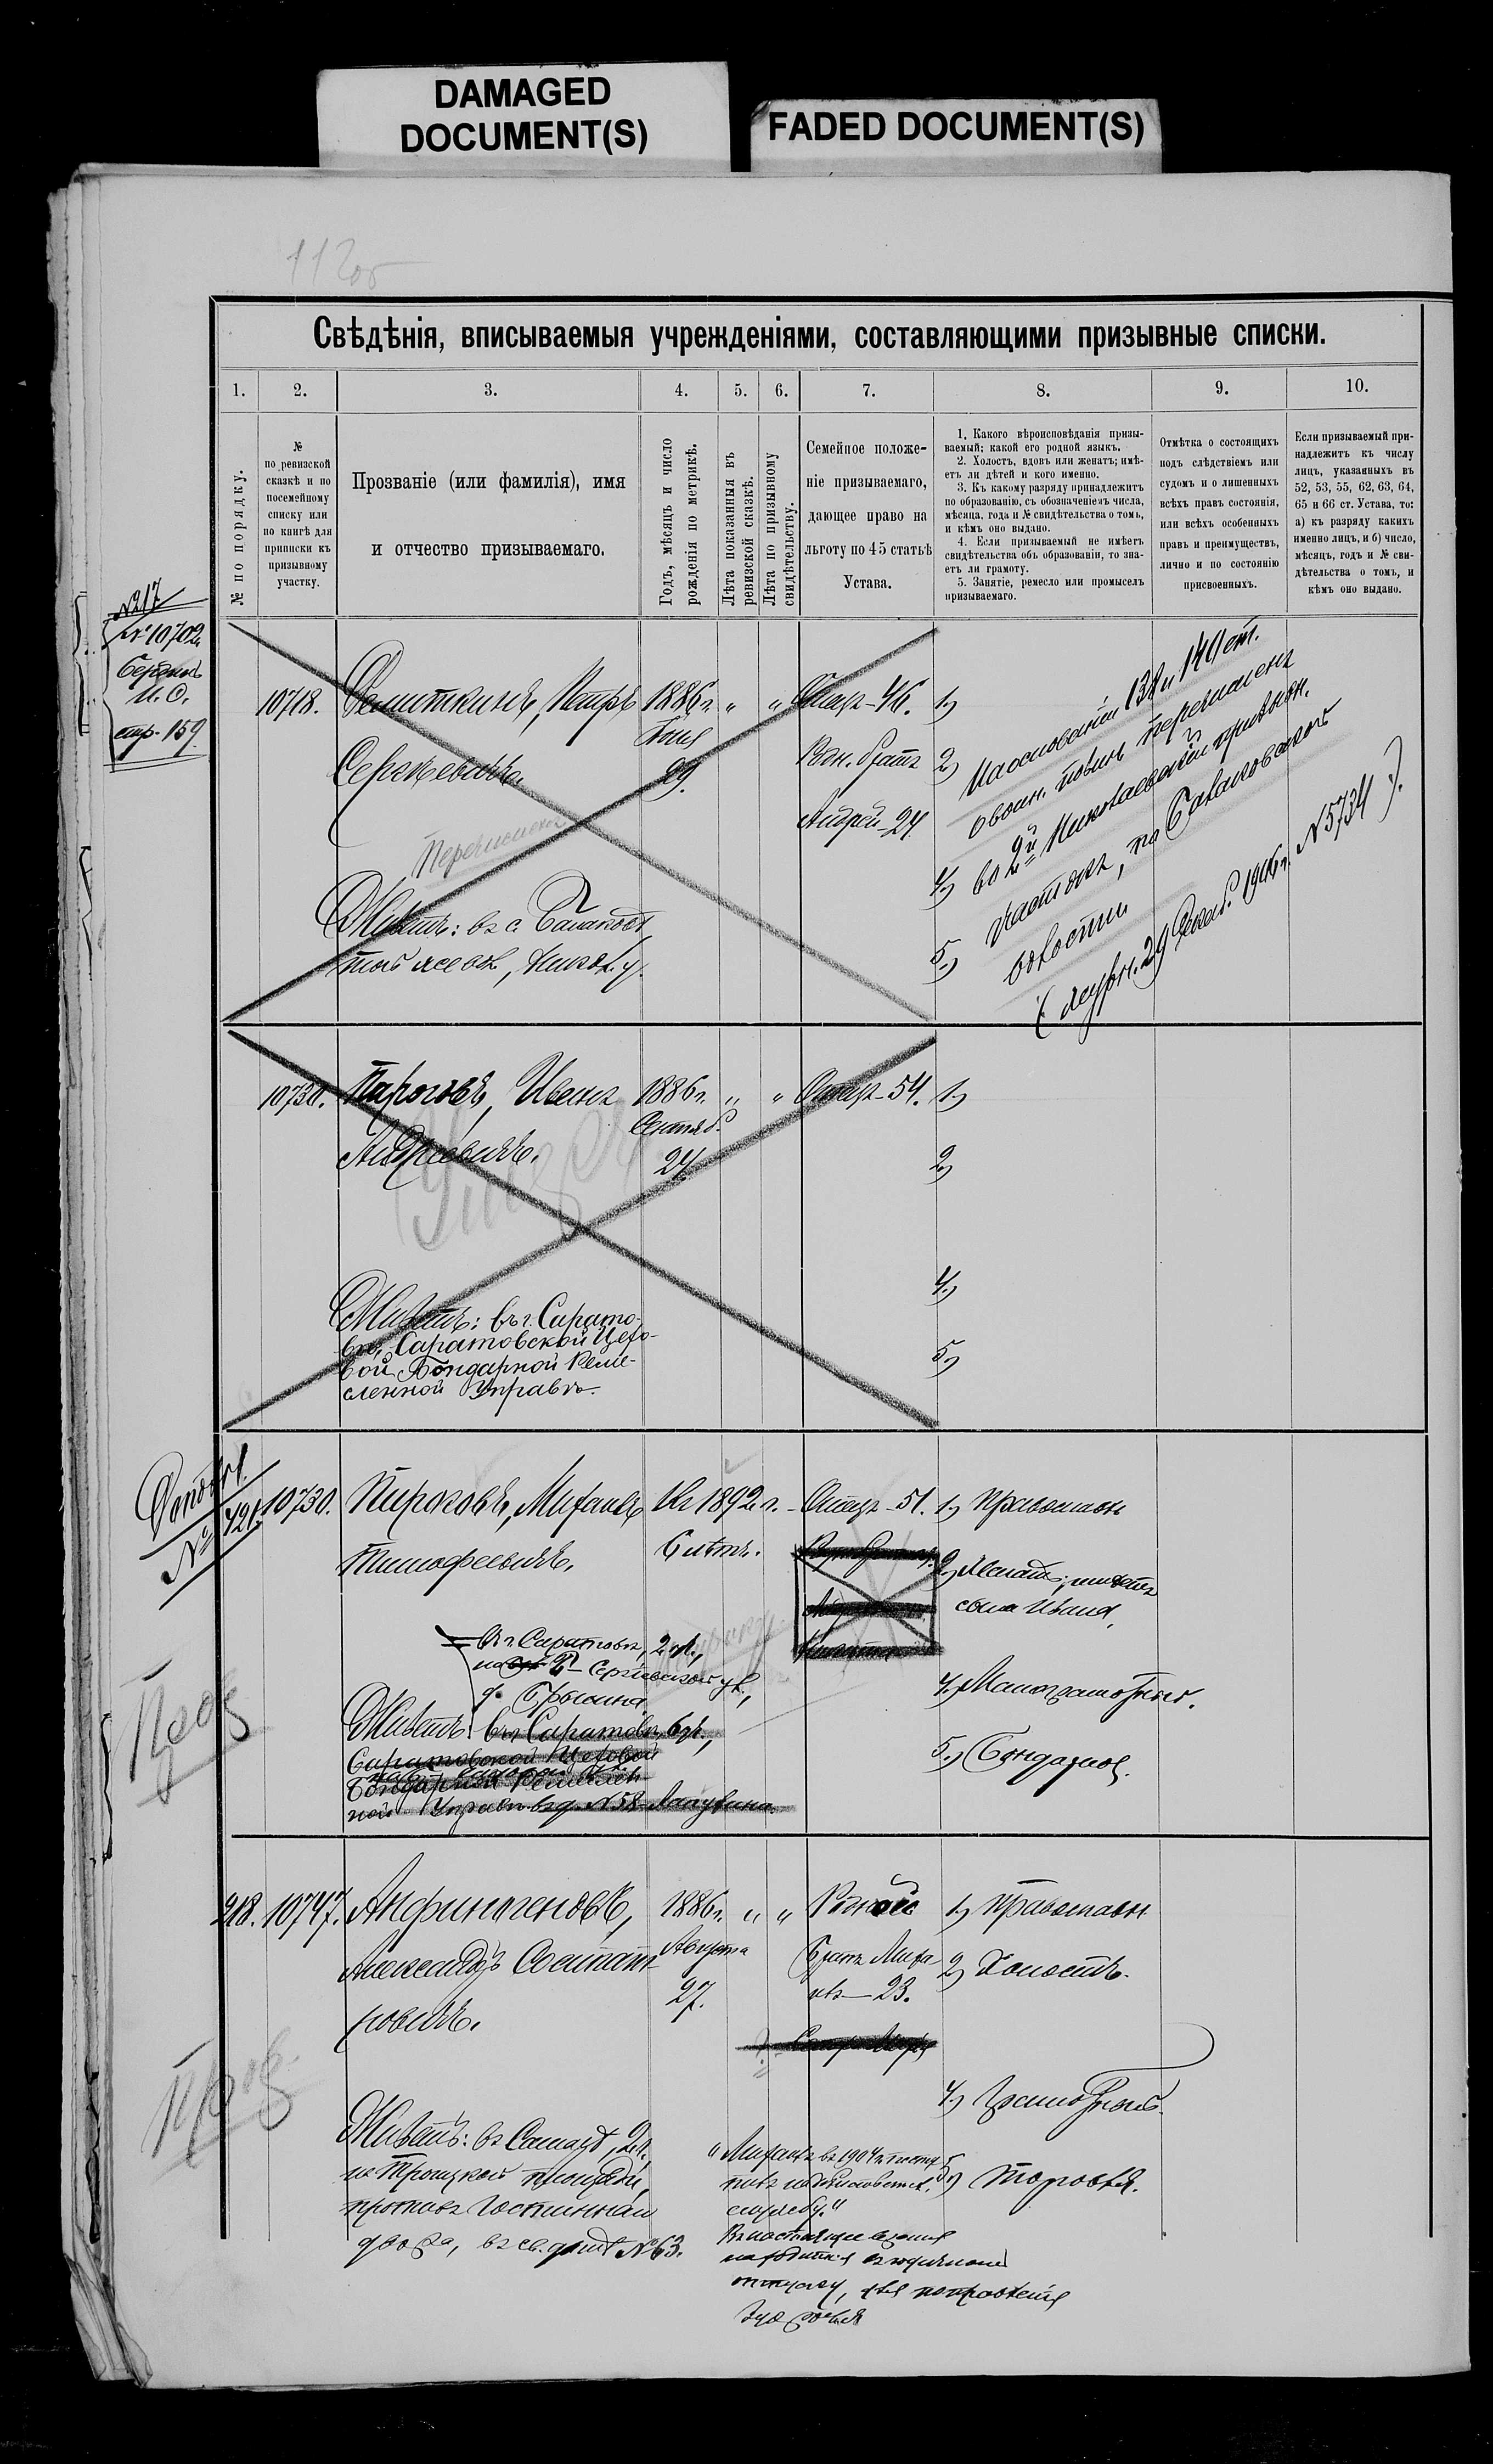 DAMAGED
DOCUMENT(S)
FADED DOCUMENT(S)
112об
Свѣдѣнія, вписываемыя учрежденіями, составляющими призывные списки.
1.
2.
3.
4.
5.
6.
7.
8.
9.
10.
№ по порядку.
№
по ревизской
сказкѣ и по
посемейному
списку или
по книгѣ для
приписки къ
призывному
участку.
Прозваніе (или фамилія), имя
и отчество призываемаго.
Годъ, мѣсяцъ и число
рожденія по метрикѣ.
Лѣта показанныя въ
ревизской сказкѣ.
Лѣта по призывному
свидѣтельству.
Семейное положе-
ніе призываемаго,
дающее право на
льготу по 45 статьѣ
Устава.
1. Какого вѣроисповѣданія призы-
ваемый; какой его родной языкъ.
2. Холостъ, вдовъ или женатъ; имѣ-
етъ ли дѣтей и кого именно.
3. Къ какому разряду принадлежитъ
по образованію, съ обозначеніемъ числа,
мѣсяца, года и № свидѣтельства о томъ,
и кѣмъ оно выдано.
4. Если призываемый не имѣетъ
свидѣтельства объ образованіи, то зна-
етъ ли грамоту.
5. Занятіе, ремесло или промыселъ
призываемаго.
Отмѣтка о состоящихъ
подъ слѣдствіемъ или
судомъ и о лишенныхъ
всѣхъ правъ состоянія,
или всѣхъ особенныхъ
правъ и преимуществъ,
лично и по состоянію
присвоенныхъ.
Если призываемый при-
надлежитъ къ числу
лицъ, указанныхъ въ
52, 53, 55, 62, 63, 64,
65 и 66 ст. Устава, то:
а) къ разряду какихъ
именно лицъ, и б) число,
мѣсяцъ, годъ и № сви-
дѣтельства о томъ, и
кѣмъ оно выдано.
№217
№10702
И. О.
стр. 159.
10718.
Петръ
Сергѣевичъ.
1886г. " "
Іюня
29.
Отецъ-46.
Родн. братъ
Андрей-24
1)
2)
4)
5)
На основаніи 138 и 140 ст.
о воин. повин. перечисленъ
во 2й Николаевскій призывн.
участокъ, по Балаковской
волости
(журн. 29 1906г. №5734).
Перечисленъ
Живетъ: въ с. Балаковѣ
10730.
Пироговъ, Иванъ
Андреевичъ.
1886г. " "
Сентяб.
24
Отецъ-54.
1)
2)
4)
5)
Умеръ
Живетъ: въ г. Сарато-
вѣ, Саратовской Цехо-
вой Бондарной Реме-
сленной Управѣ.
№ 421
10730.
Пироговъ, Михаилъ
Тимофеевичъ.
Къ 1892г.
6 лѣтъ.
Отецъ-51.
1) Православн
2) Женатъ; имѣетъ
сына Ивана,
4) Малограмотный.
5) Бондарное.
Въ г. Саратовѣ, 2 ч.,
Сергіевской ул.,
Живетъ: въ г. Саратовѣ, 6 ч.,
Саратовской Цеховой
Бондарной Ремеслен
ной Управѣ. въ д. №58
Пров
218.
10747.
Анфиногеновъ,
Александръ
1886г. " "
Августа
27.
Родной
братъ Миха-
илъ-23.
1) Православн
2) Холостъ.
4) Грамотный.
5) Торговля.
Пров.
Живетъ: въ Самарѣ, 2ч.
на Троицкой площади,
противъ Гостиннаго
двора, въ св. домѣ №63.
"Михаилъ въ 1904г. посту
пилъ на дѣйствовательн.
службу."
Въ настоящее время
находится въ годичномъ
отпуску, для поправленія
здоровья